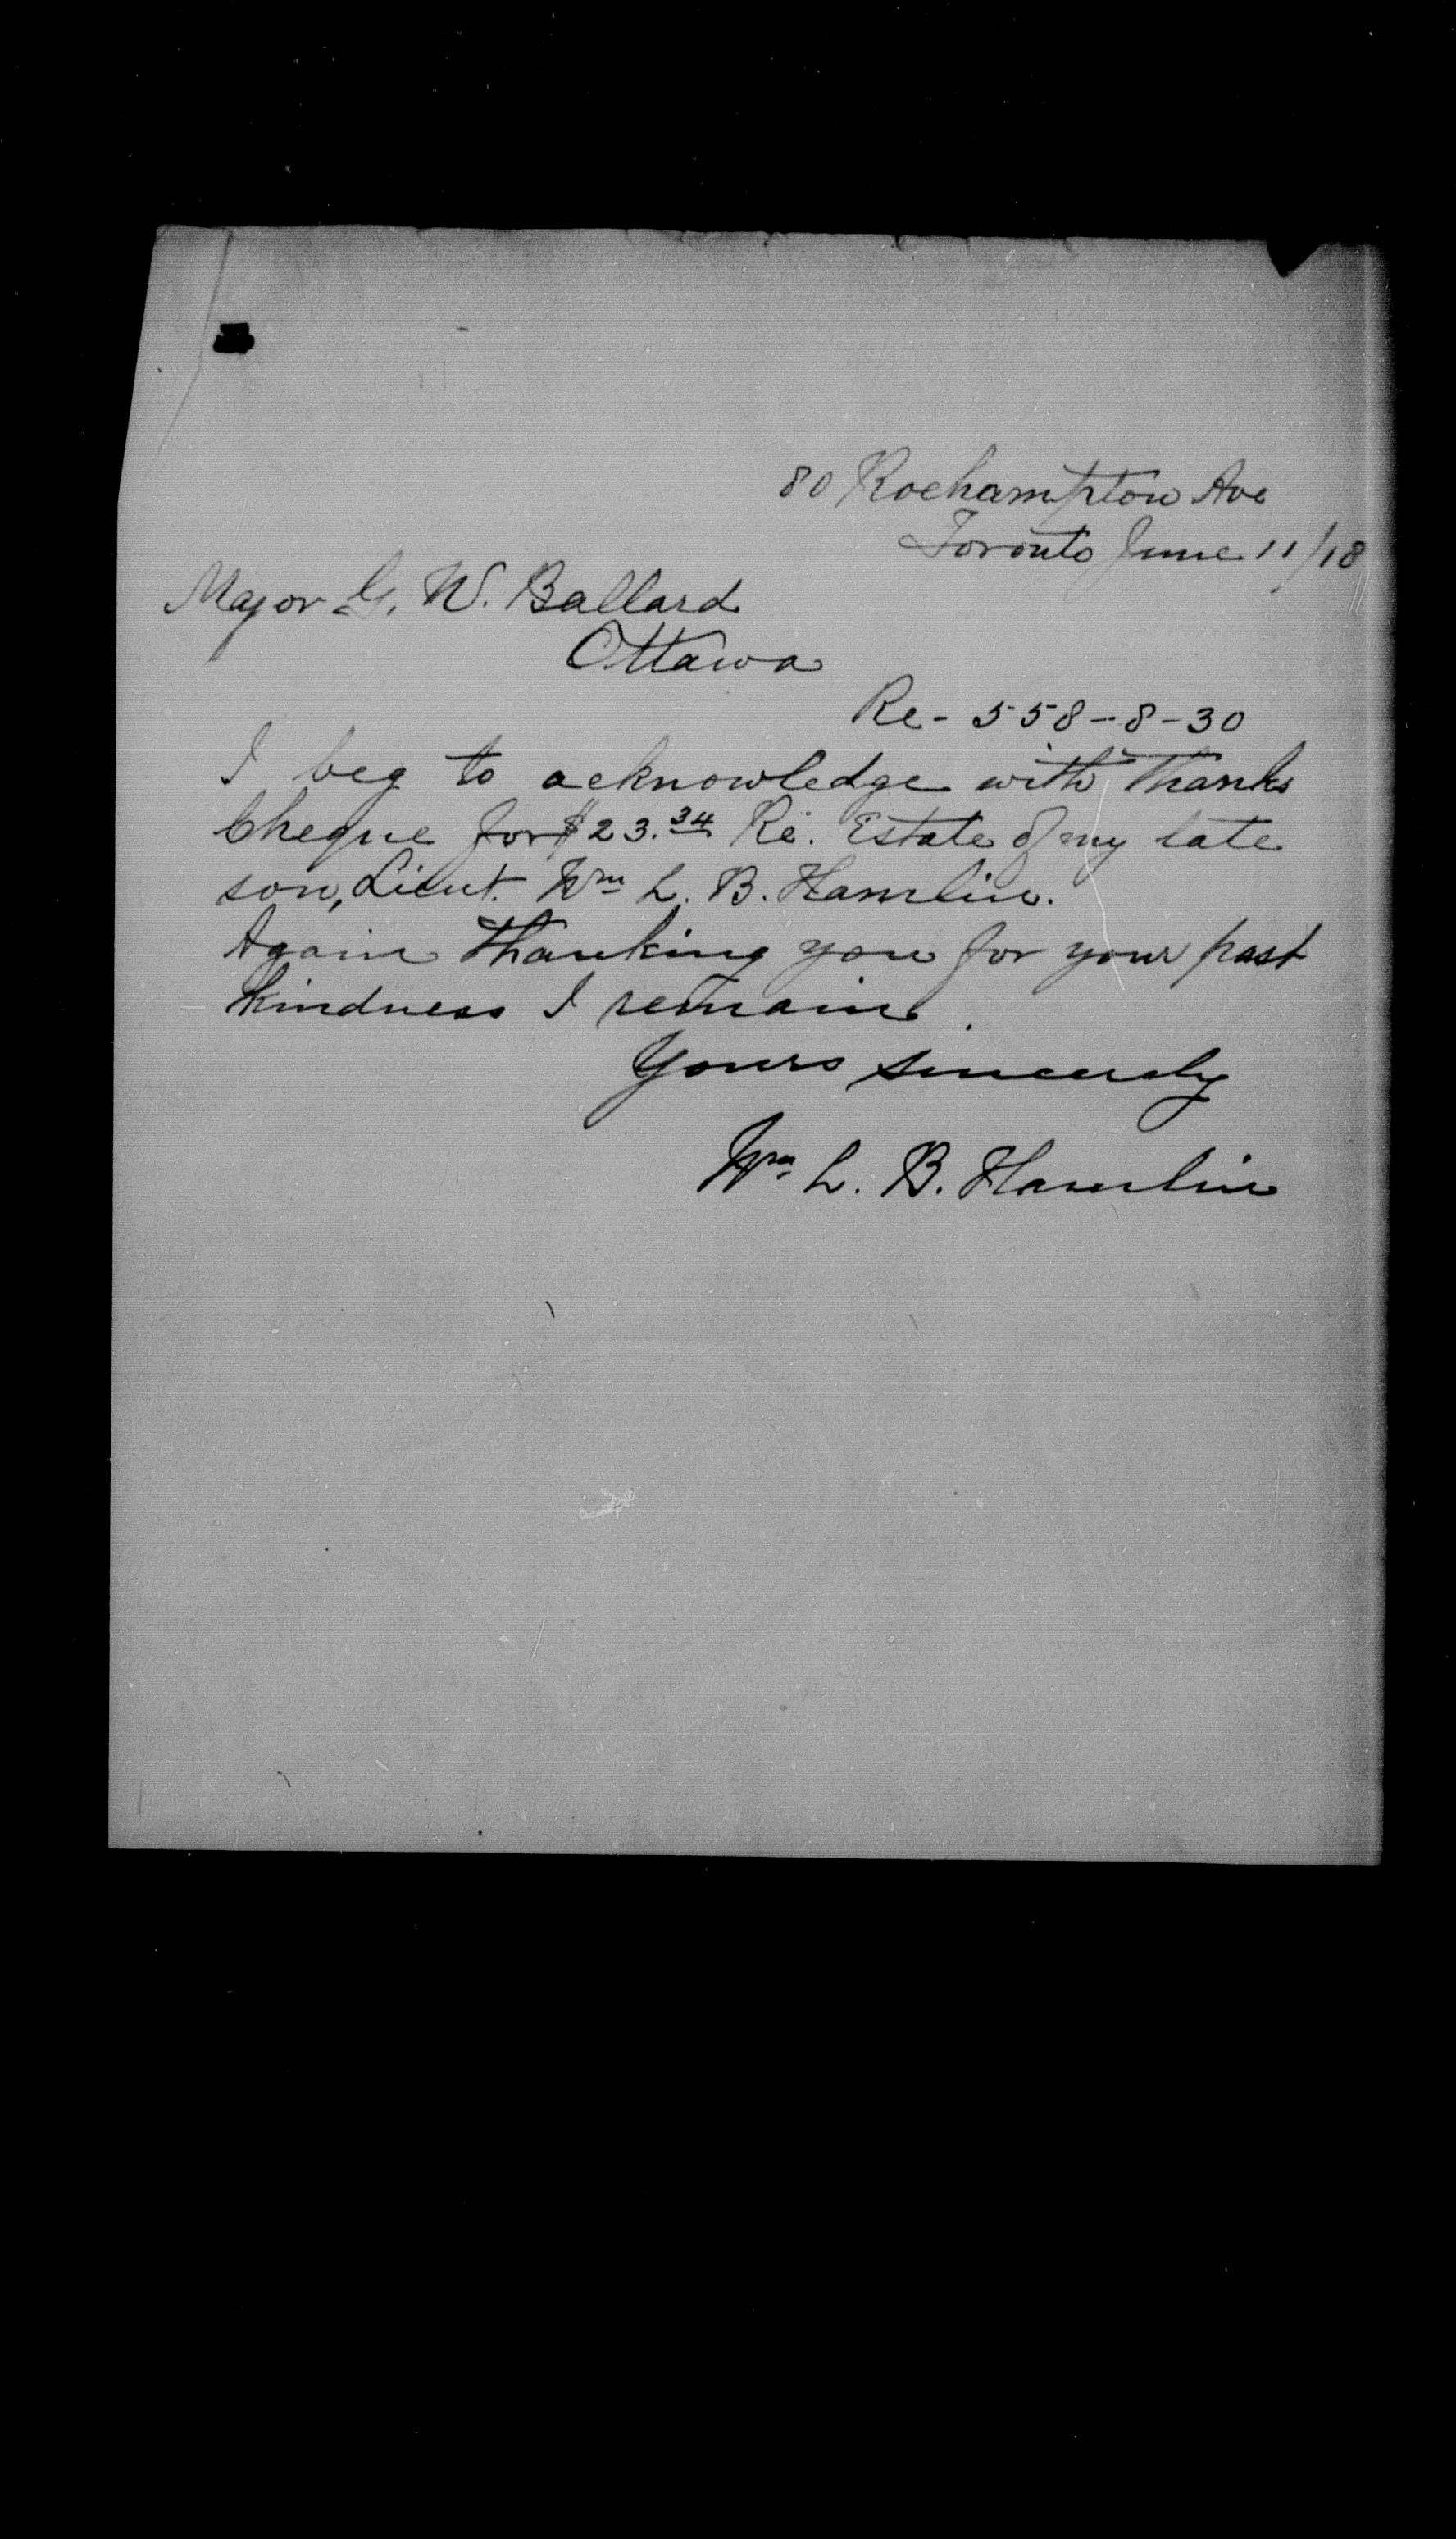 80 Roehampton Ave
Toronto June 11/18
Major G. W. Ballard
Ottawa
Re - 558-8-30
I beg to acknowledge with thanks
Cheque for $23.34 Re. Estate of my late
son, Lieut. Wm L. B. Hamlin.
Again thanking you for your past
kindness I remain.
Yours sincerely
Wm L. B. Hamlin